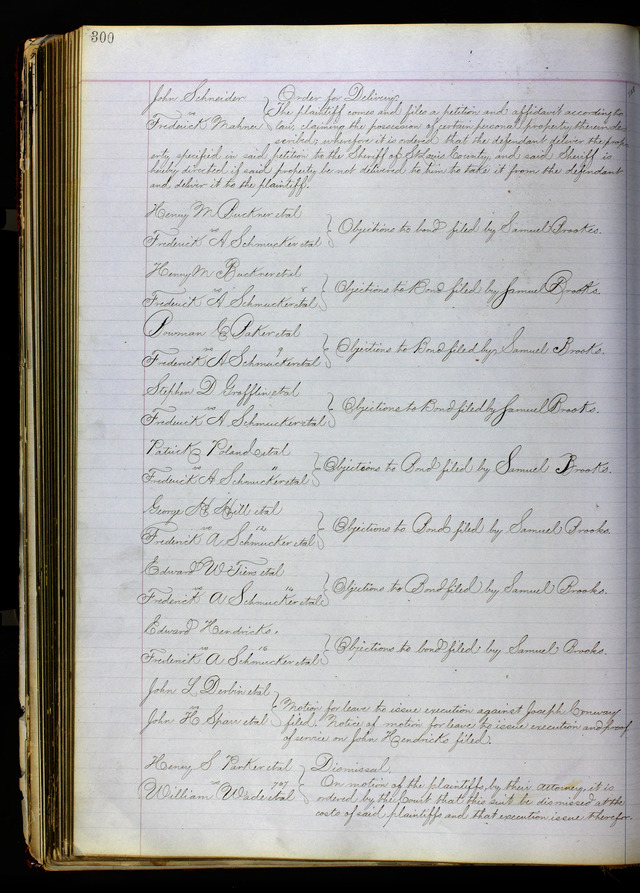 300
John Schneider } Order for Delivery.
vs The plaintiff comes and files a petition and affidavit according to
Frederick Mahner law, claiming the possession of certain personal property therein de-
scribed; wherefore it is ordered that the defendant deliver the prop-
erty specified in said petition to the Sheriff of St Louis County, and said Sheriff is
hereby directed if said property be not delivered to him to take it from the defendant
and deliver it to the plaintiff.
Henry M Buckner etal
vs } Objections to bond filed by Samuel Brooks.
Frederick A Schmucker etal
Henry M Buckner etal
vs } Objections to Bond filed by Samuel Brooks.
Frederick A Schmucker etal
Bowman C Baker etal
vs 9 } Objections to Bond filed by Samuel Brooks.
Frederick A Schmucker etal
Stephen D Grafflin etal
vs } Objections to Bond filed by Samuel Brooks.
Frederick A. Schmucker etal
Patrick Poland etal
vs 11 } Objections to Bond filed by Samuel Brooks.
Frederick A Schmucker etal
George H Hill etal
vs 12 } Objections to Bond filed by Samuel Brooks.
Frederick A Schmucker etal
Edward W Tiers etal
vs } Objections to Bond filed by Samuel Brooks.
Frederick A Schmucker etal
Edward Hendricks.
vs } Objections to bond filed by Samuel Brooks.
Frederick A Schmucker etal
John L Derbin etal
vs } Motion for leave to issue execution against Joseph Conway
John H Sparr etal filed. Notice of motion for leave to issue execution and proof
of service on John Hendricks filed.
Henry S Parker etal } Dismissal.
vs 797 On motion of the plaintiffs, by their attorney, it is
William Wade etal ordered by the Court that this suit be dismissed at the
costs of said plaintiffs and that execution issue therefor.